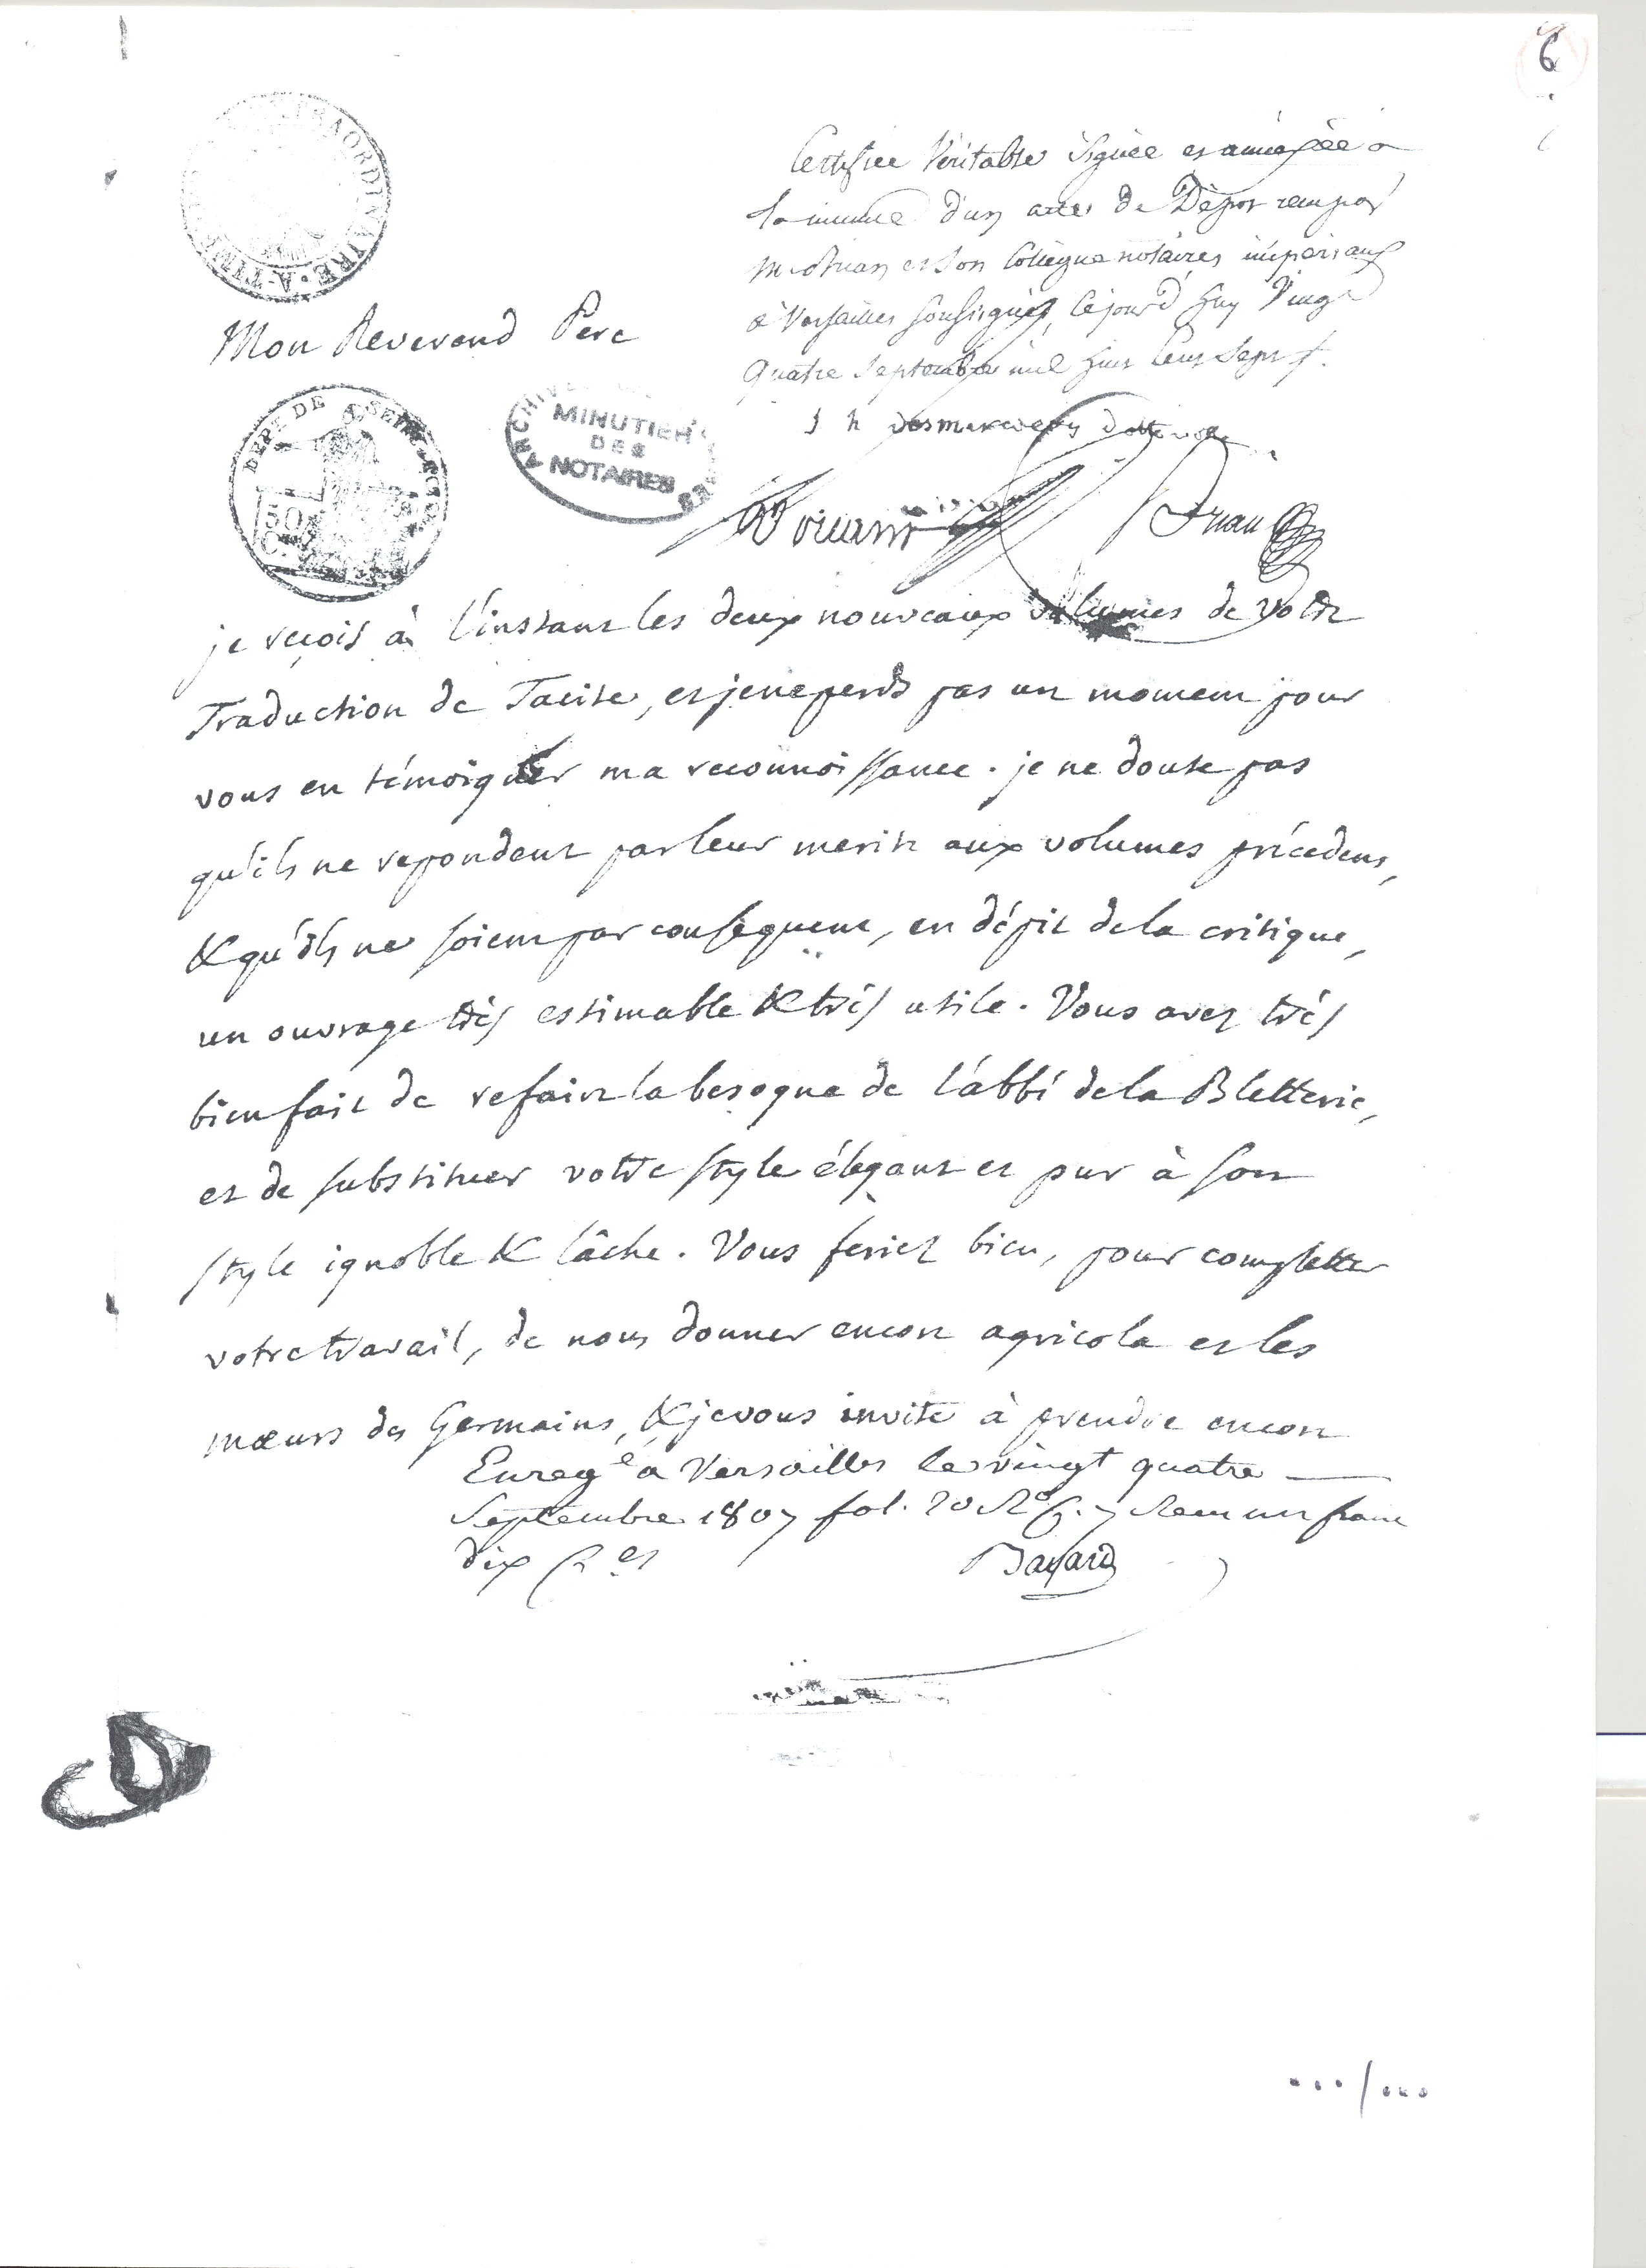 6
Certifiee Véritable Signée et annexée a
la minute d'un acte de Dépot recu par
Me Bruan et Son Collegue notaires impériaux
à Versailles soussignés, cejourd'huy Vingt
quatre Septembre mil huit Cent Sept
EXTRAORDINAIRE · A · TIMB
Mon Reverend Pere
DEPT DE SEINE
50
C
ARCHIVES
MINUTIER
DES
NOTAIRES
je reçois à l'instant les deux nouveaux volumes de votre
Traduction de Tacite, et je ne perds pas un moment pour
vous en témoigner ma reconnoissance. je ne doute pas
qu'ils ne repondent par leur merite aux volumes précedens,
& qu'ils ne soient par conséquent, en dépit de la critique,
un ouvrage très estimable & très utile. Vous avez très
bien fait de refaire la besogne de l'abbé de la Bletterie,
et de substituer votre style élégant et pur à son
style ignoble & lâche. Vous feriez bien, pour completter
votre travail, de nous donner encore agricola et les
mœurs des Germains, & je vous invite à prendre encore
Enregé a Versailles le vingt quatre
Septembre 1807 fol. 20 Ro C. 7 Recu un franc
dix ces Bayard
.../...